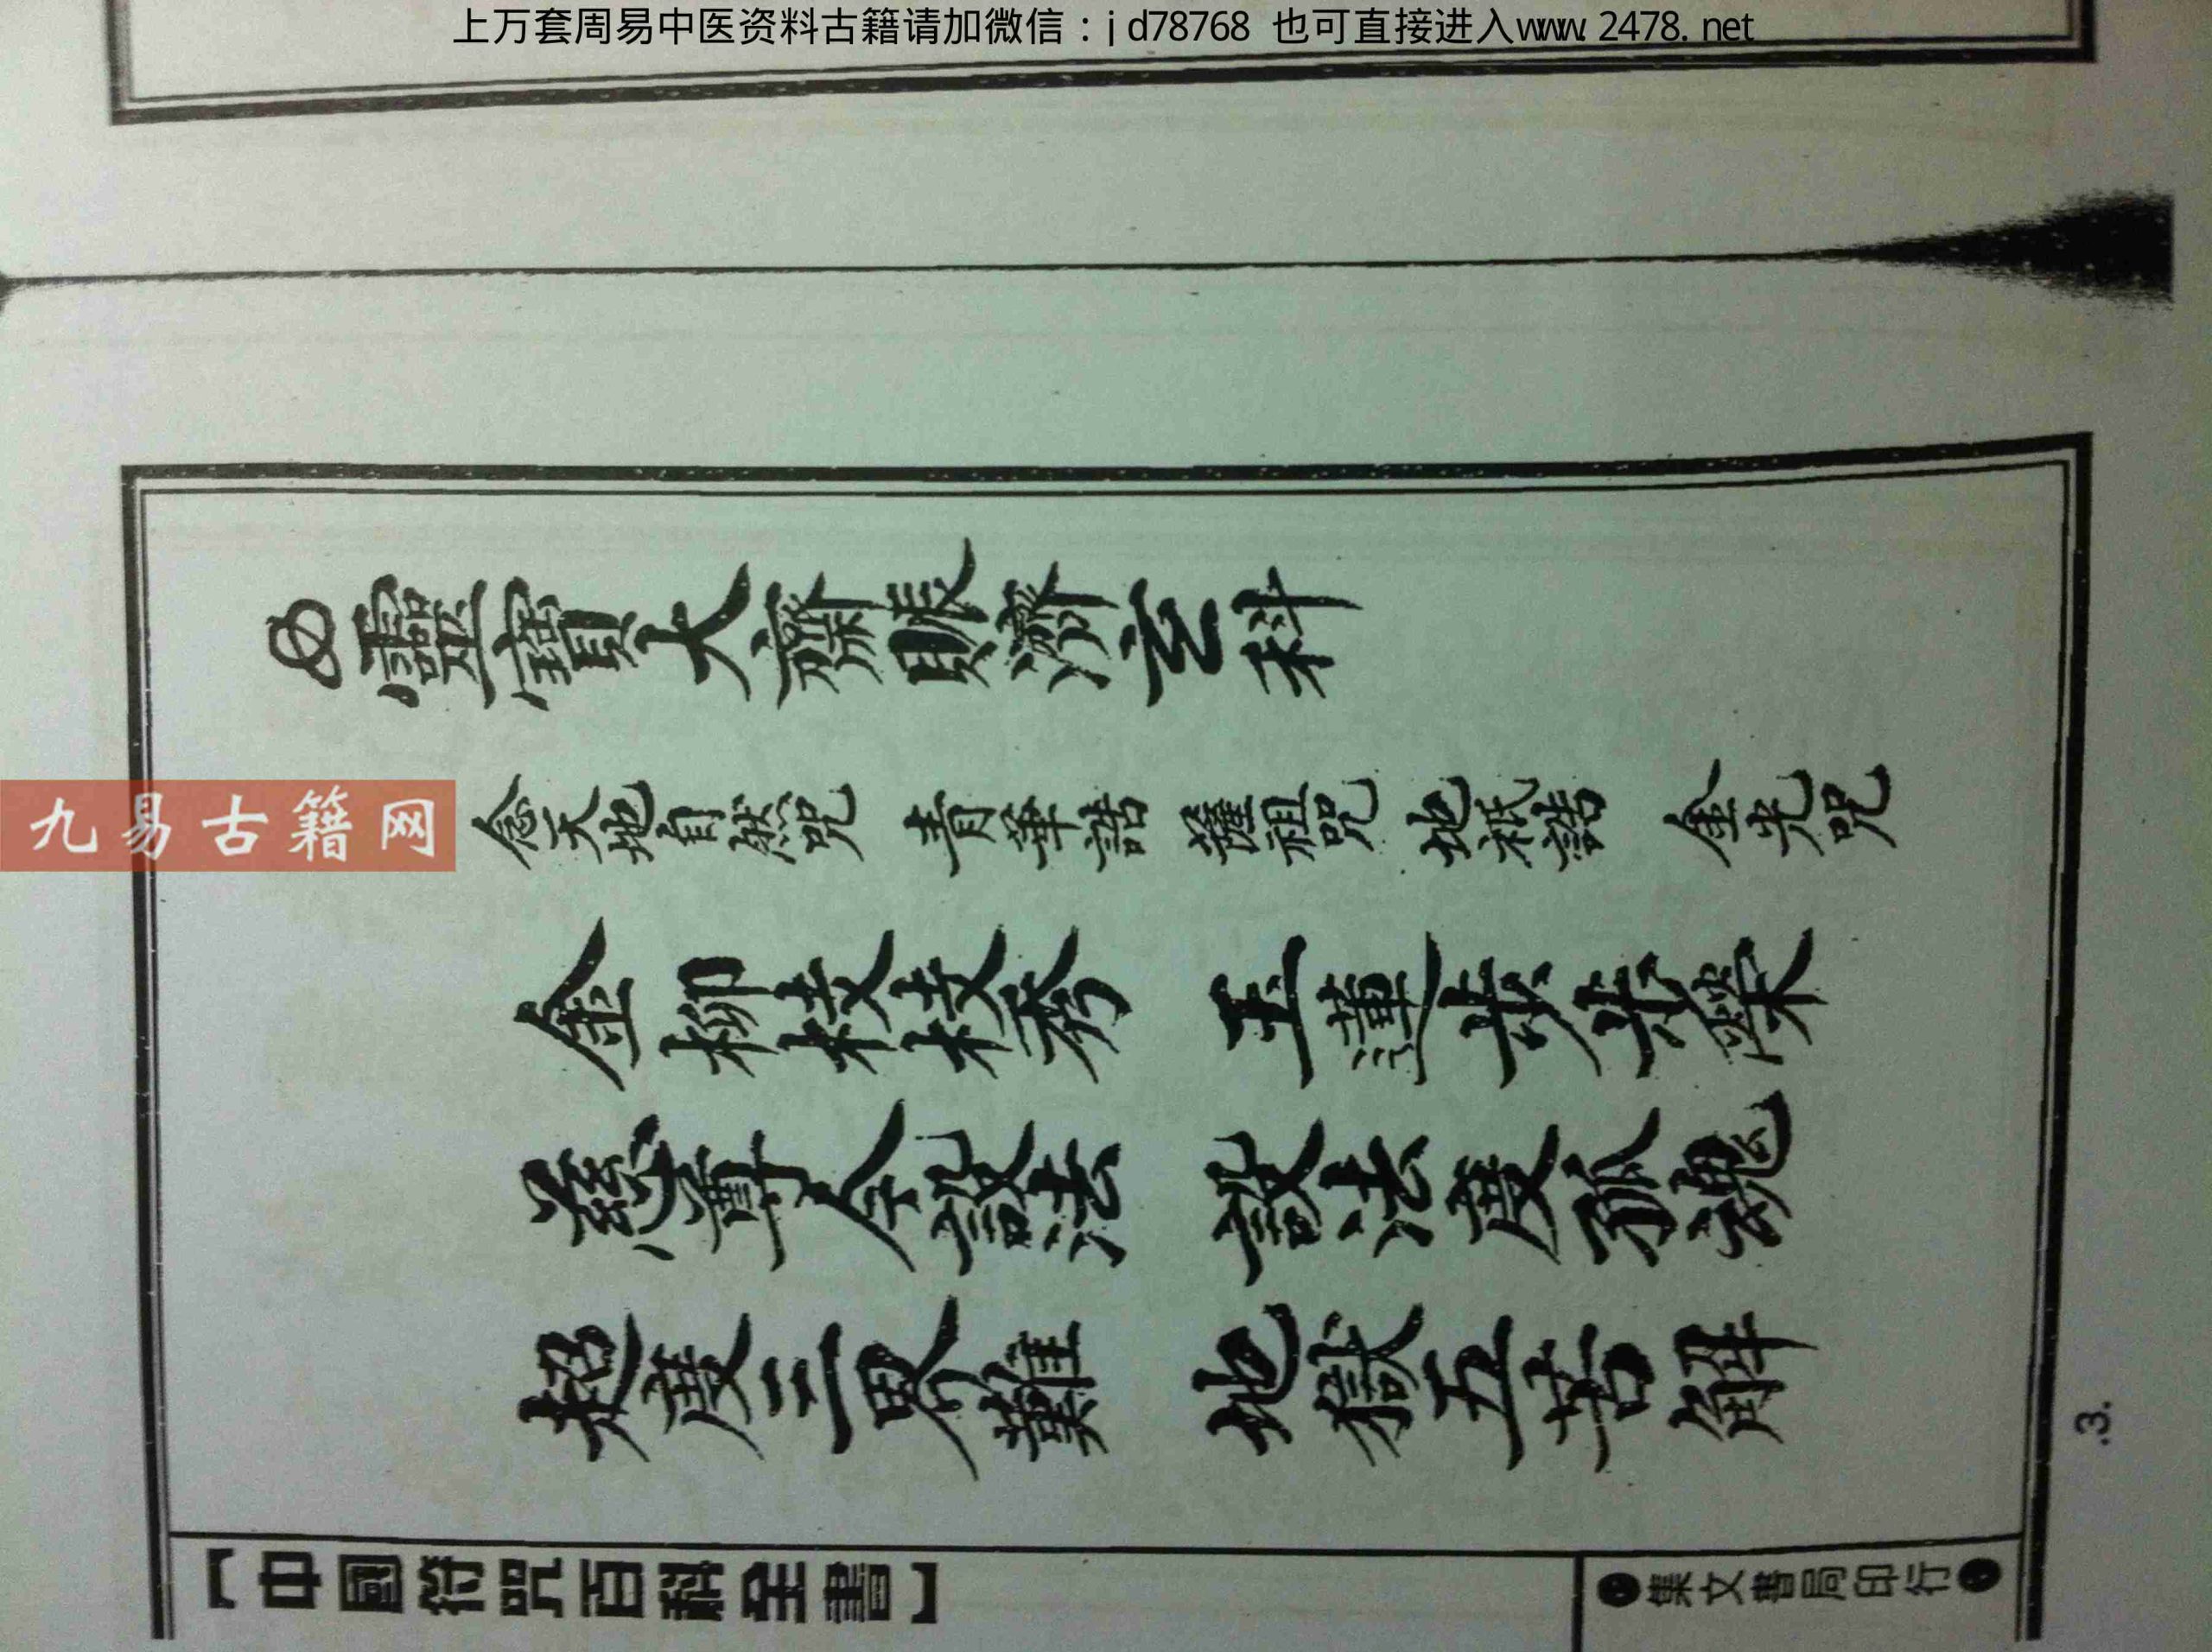 上万套周易中医资料古籍请加微信：jd78768 也可直接进入www.2478.net
九易古籍网
靈寶大齋賑濟玄科
念天地自然咒 青華誥 薩祖咒 地祇誥 金光咒
金柳枝枝秀 玉蓮步步渠
慈尊今説法 説法度孤魂
超度三界難 地獄五苦解
【中國符咒百科全書】
集文書局印行
.3.